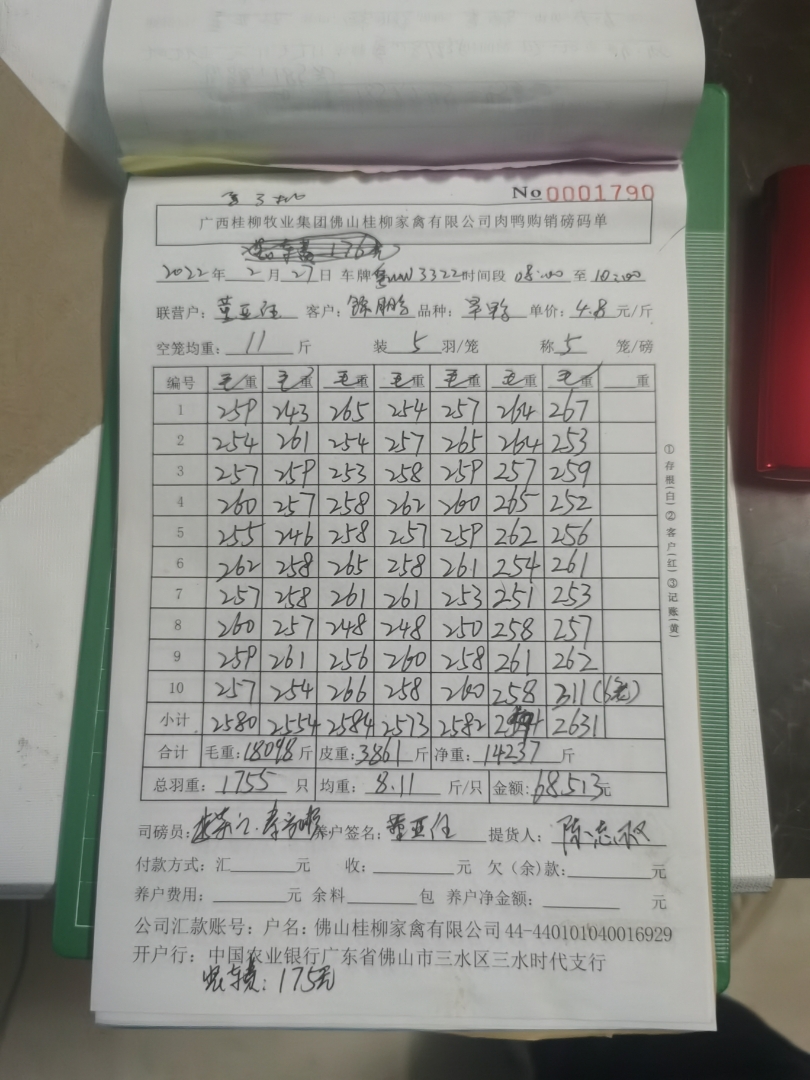 第3批
No 0001790
广西桂柳牧业集团佛山桂柳家禽有限公司肉鸭购销磅码单
2022年 2月 27日 车牌 3322 时间段 08:00 至 10:00
联营户: 董亚任 客户: 品种: 单价: 4.8 元/斤
空笼均重: 11 斤 装 5 羽/笼 称 5 笼/磅
编号 毛重 毛重 毛重 毛重 毛重 毛重 毛重 重
1 259 243 265 254 257 264 267
2 254 261 254 257 265 264 253
3 257 259 253 258 259 257 259
4 260 257 258 262 260 265 252
5 255 246 258 257 259 262 256
6 262 258 265 258 261 254 261
7 257 258 261 261 253 251 253
8 260 257 248 248 250 258 257
9 259 261 256 260 258 261 262
10 257 254 266 258 260 258 311(6笼)
小计 2580 2554 2584 2573 2582 2631
合计 毛重: 18098 斤 皮重: 3861 斤 净重: 14237 斤
总羽重: 1755 只 均重: 8.11 斤/只 金额: 68.513元
司磅员: 养户签名: 董亚任 提货人: 陈志权
付款方式: 汇 元 收: 元 欠(余)款: 元
养户费用: 元 余料 包 养户净金额: 元
公司汇款账号: 户名: 佛山桂柳家禽有限公司 44-440101040016929
开户行: 中国农业银行广东省佛山市三水区三水时代支行
175元
①存根(白)②客户(红)③记账(黄)